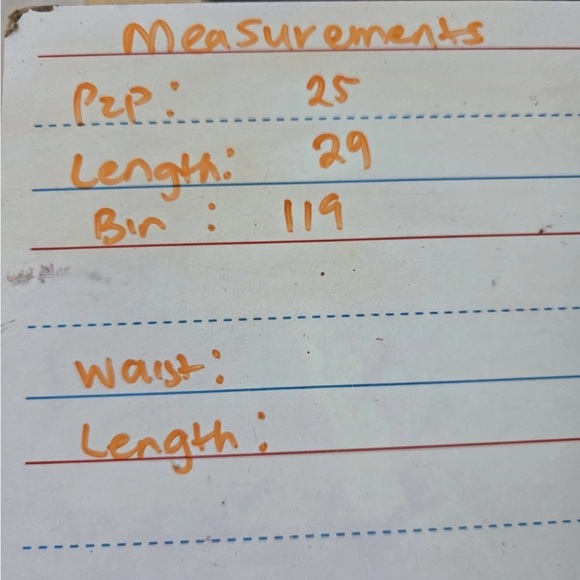 Measurements
P2P: 25
Length: 29
Bin : 119
Waist:
Length: